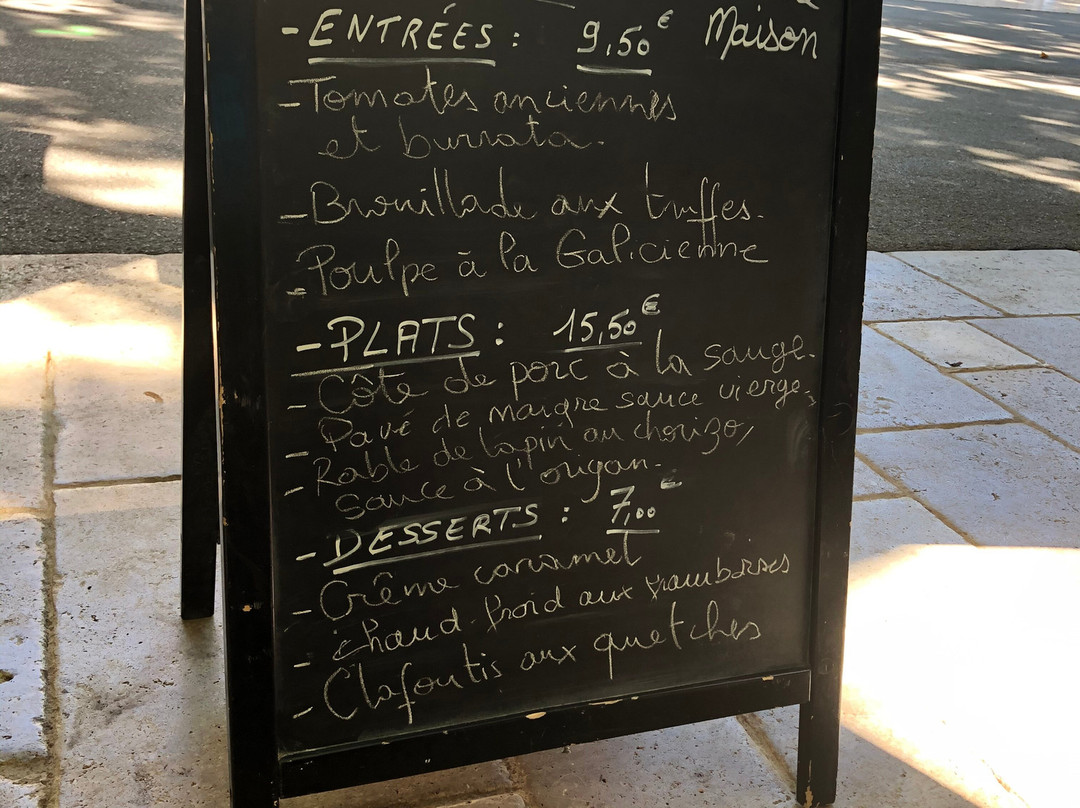 - ENTRÉES : 9,50€ Maison
- Tomates anciennes
et burrata.
- Brouillade aux truffes.
- Poulpe à la Galicienne
- PLATS : 15,50€
- Côte de porc à la sauge.
- Pavé de maigre sauce vierge.
- Rable de lapin au chorizo,
sauce à l'origan.
- DESSERTS : 7,00€
- Crême caramel
- Chaud-froid aux framboises
- Clafoutis aux quetches